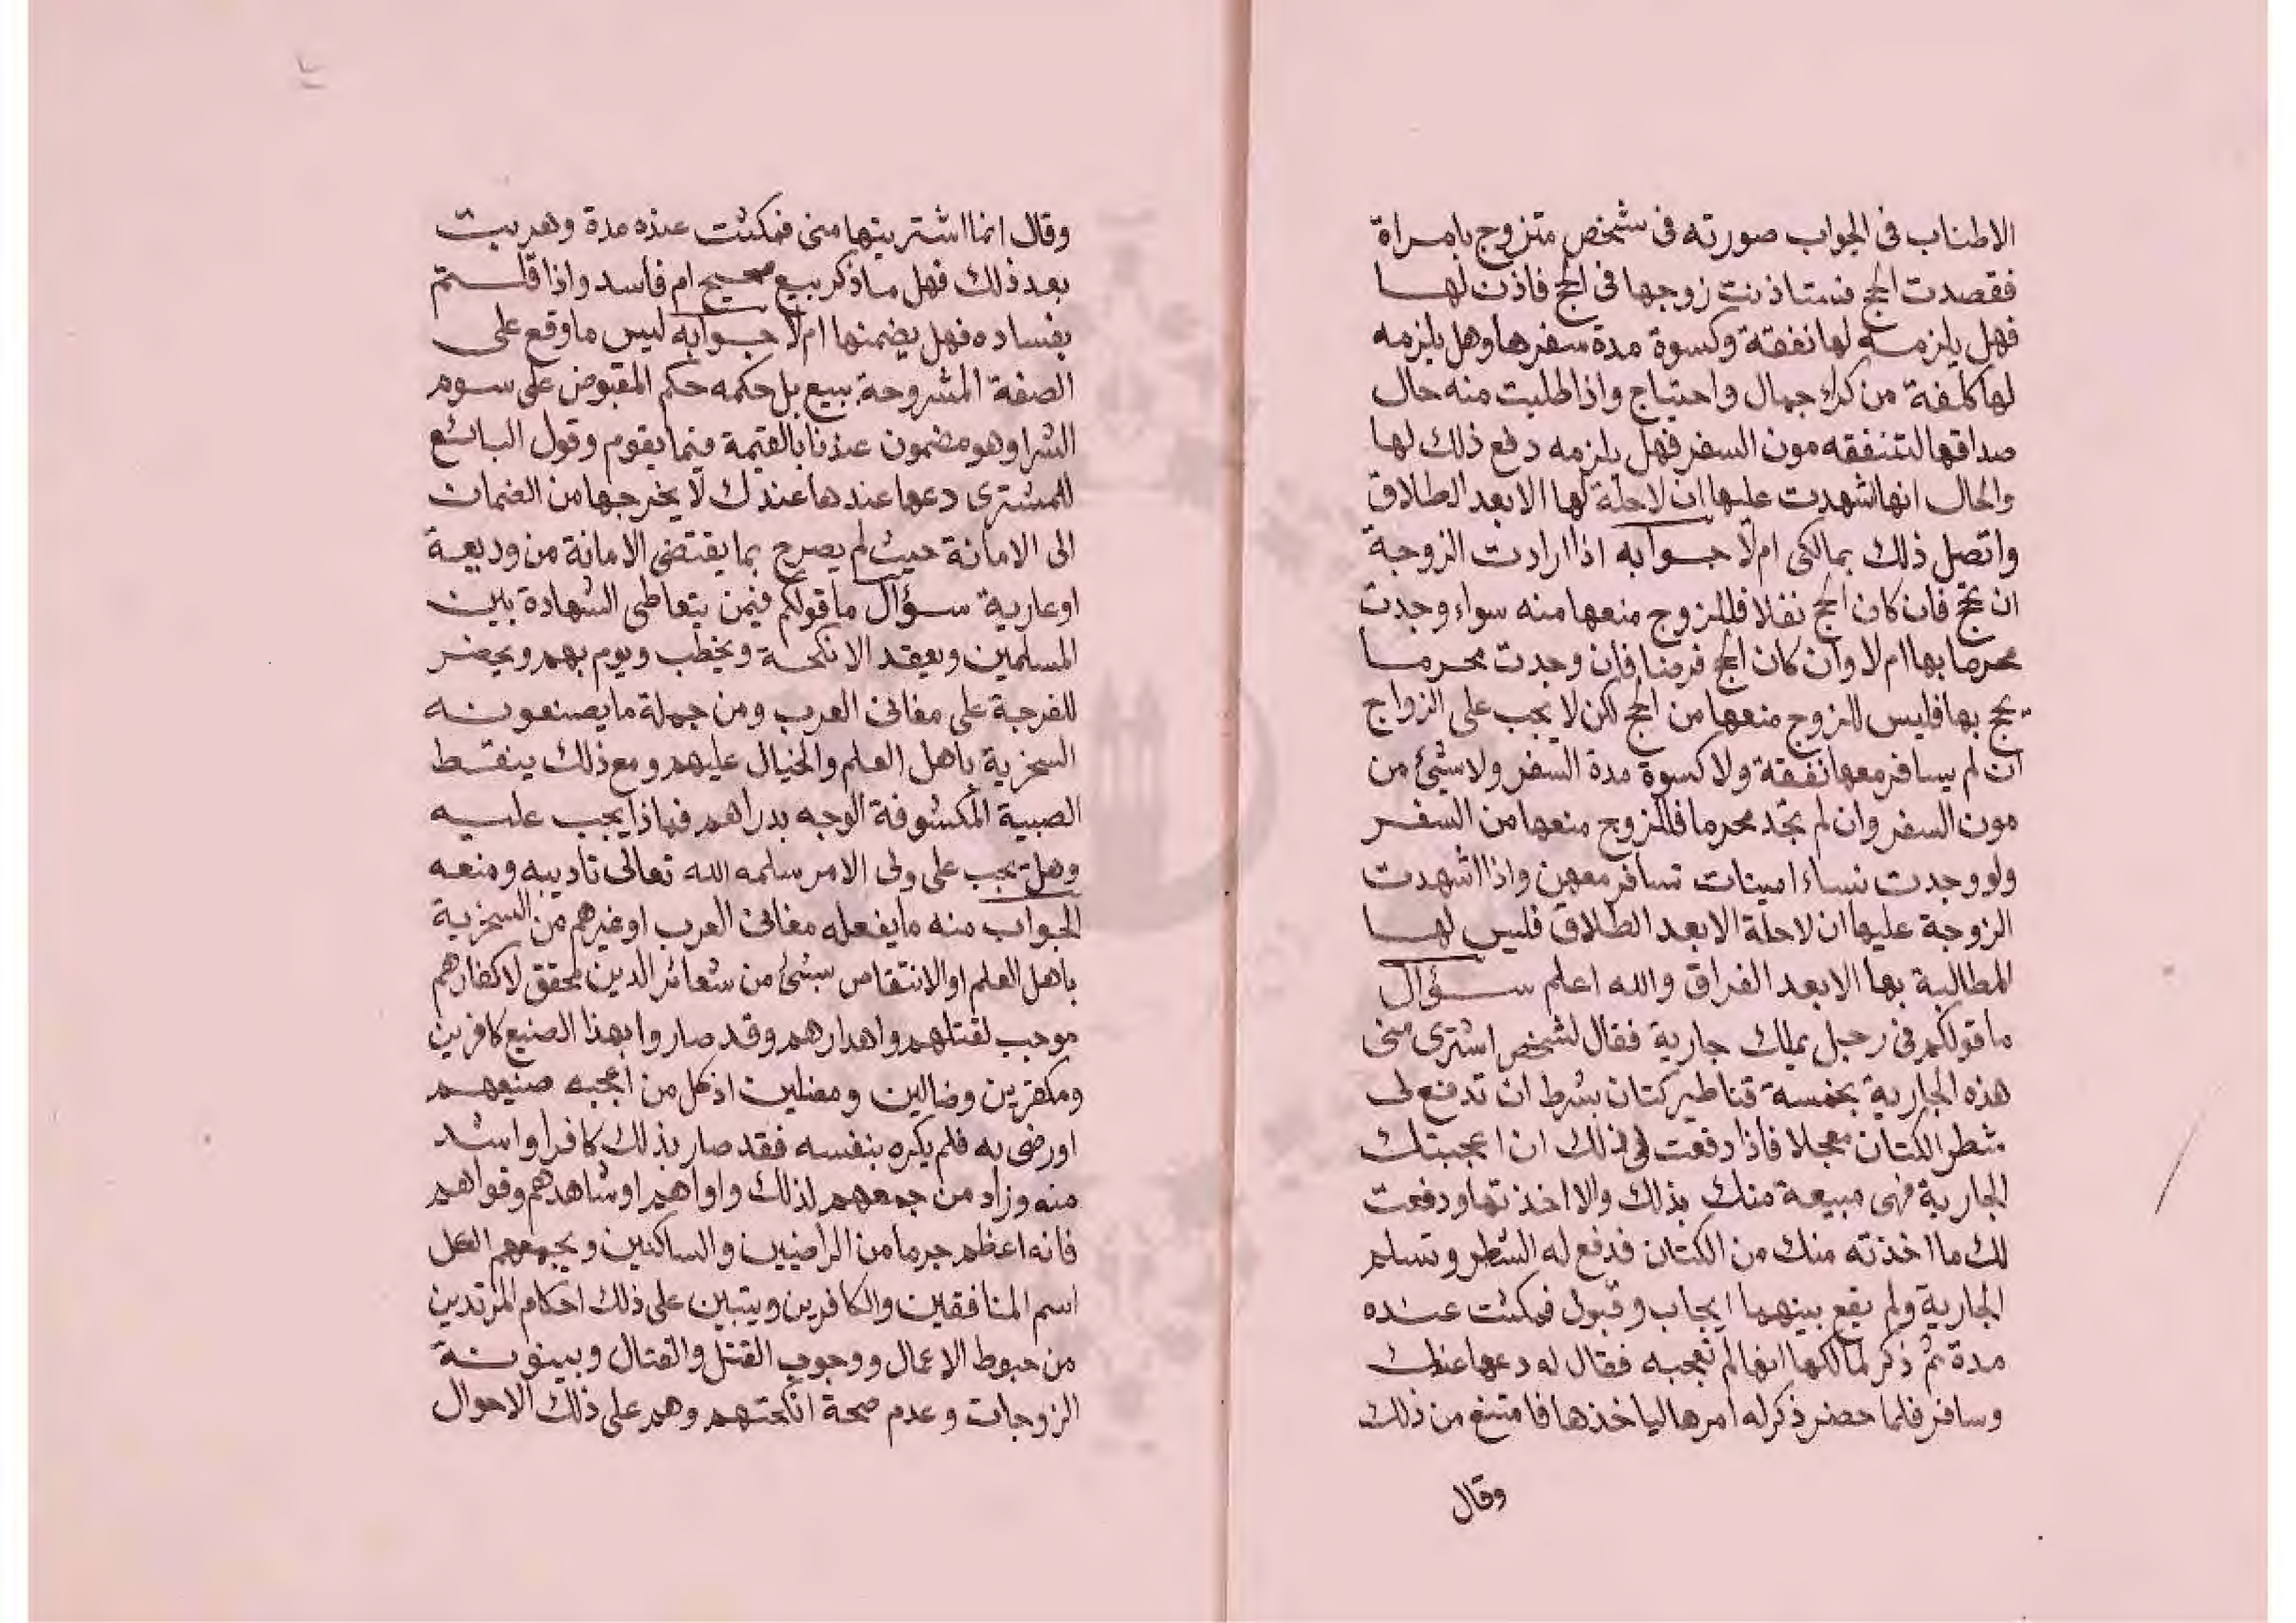 الاطناب فى الجواب صورته فى شخص متزوج بامراة
فقصدت الحج فستاذنت زوجها فى الحج فاذن لها
فهل يلزمه لها نفقة وكسوة مدة سفرها وهل يلزمه
لها كلفة من كراء جمال واحتياج واذا طلبت منه حال
صداقها لتنفقه مون السفر فهل يلزمه دفع ذلك لها
والحال انها شهدت عليها ان لا حلة لها الا بعد الطلاق
واتصل ذلك بمالكى ام لا جوابه اذا ارادت الزوجة
ان تحج فان كان الحج نفلا فللزوج منعها منه سواء وجدت
محرما بها ام لا وان كان الحج فرضا فان وجدت محرما
يحج بها فليس للزوج منعها من الحج لكن لا يجب على الزواج
ان لم يسافر معها نفقة ولا كسوة مدة السفر ولا شئ من
مون السفر وان لم تجد محرما فللزوج منعها من السفر
ولو وجدت نساء امينات تسافر معهن واذا اشهدت
الزوجة عليها ان لا حلة الا بعد الطلاق فليس لها
المطالبة بها الا بعد الفراق والله اعلم سؤال
ما قولكم فى رجل يملك جارية فقال لشخص اشترى منى
هذه الجارية بخمسة قناطير كتان بشرط ان تدفع لى
شطر الكتان معجلا فاذا دفعت لى ذلك ان اعجبتك
الجارية فهى مبيعة منك بذلك والا اخذتها ودفعت
لك ما اخذته منك من الكتان فدفع له الشطر وتسلم
الجارية ولم يقع بينهما ايجاب وقبول فمكثت عنده
مدة ثم ذكر لمالكها انها لم تعجبه فقال له دعها عندك
وسافر فلما حضر ذكر له امرها لياخذها فامتنع من ذلك
وقال
وقال انما اشتريتها منى فمكثت عنده مدة وهربت
بعد ذلك فهل ما ذكر بيع صحيح ام فاسد واذا قلتم
بفساده فهل يضمنها ام لا جوابه ليس ما وقع على
الصفة المشروحة ببيع بل حكمه حكم المقبوض على سوم
الشرا وهو مضمون عندنا بالقيمة فيما يقوم وقول البائع
للمشترى دعها عندها عندك لا يخرجها من الضمان
الى الامانة حيث لم يصرح بما يقتضى الامانة من وديعة
او عارية سؤال ما قولكم فيمن يتعاطى الشهادة بين
المسلمين ويعقد الانكحة ويخطب ويوم بهم ويحضر
للفرجة على مغانى العرب ومن جملة ما يصنعونه
السخرية باهل العلم والخيال عليهم ومع ذلك ينقط
الصبية المكشوفة الوجه بدراهم فماذا يجب عليه
وهل يجب على ولى الامر سلمه الله تعالى تاديبه ومنعه
الجواب منه ما يفعله مغانى العرب او غيرهم من السخرية
باهل العلم او الانتقاص بشئ من شعائر الدين محقق لاكفارهم
موجب لقتلهم واهدارهم وقد صاروا بهذا الصنيع كافرين
ومكفرين وضالين ومضلين اذ كل من اعجبه صنيعهم
او رضى به فلم يكره بنفسه فقد صار بذلك كافرا واشد
منه وزاد من جمعهم لذلك واواهم او شاهدهم وقواهم
فانه اعظم جرما من الراضين والساكتين ويجمعهم الكل
اسم المنافقين والكافرين ويتبين على ذلك احكام المرتدين
من حبوط الاعمال ووجوب القتل والقتال وبينونة
الزوجات وعدم صحة انكحتهم وهم على ذلك الاحوال